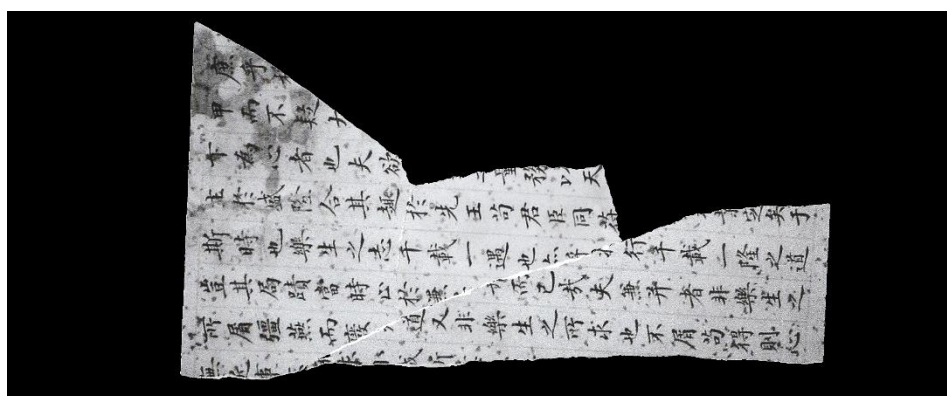 庶乎
甲而不疑大
下為心者也夫欲量務以天
主於盛隆合其趣於先王苟君臣同符定矣于
斯時也樂生之志千載一遇也亦將行千載一隆之道
豈其局蹟當時止於兼并而已哉夫兼并者非樂生之
所屑彊燕而廢道又非樂生之所求也不屑苟得則心
無近事求小成斤